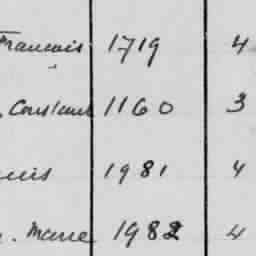 Francois 1719 4
. Constant 1160 3
1981 4
. Marie 1982 4